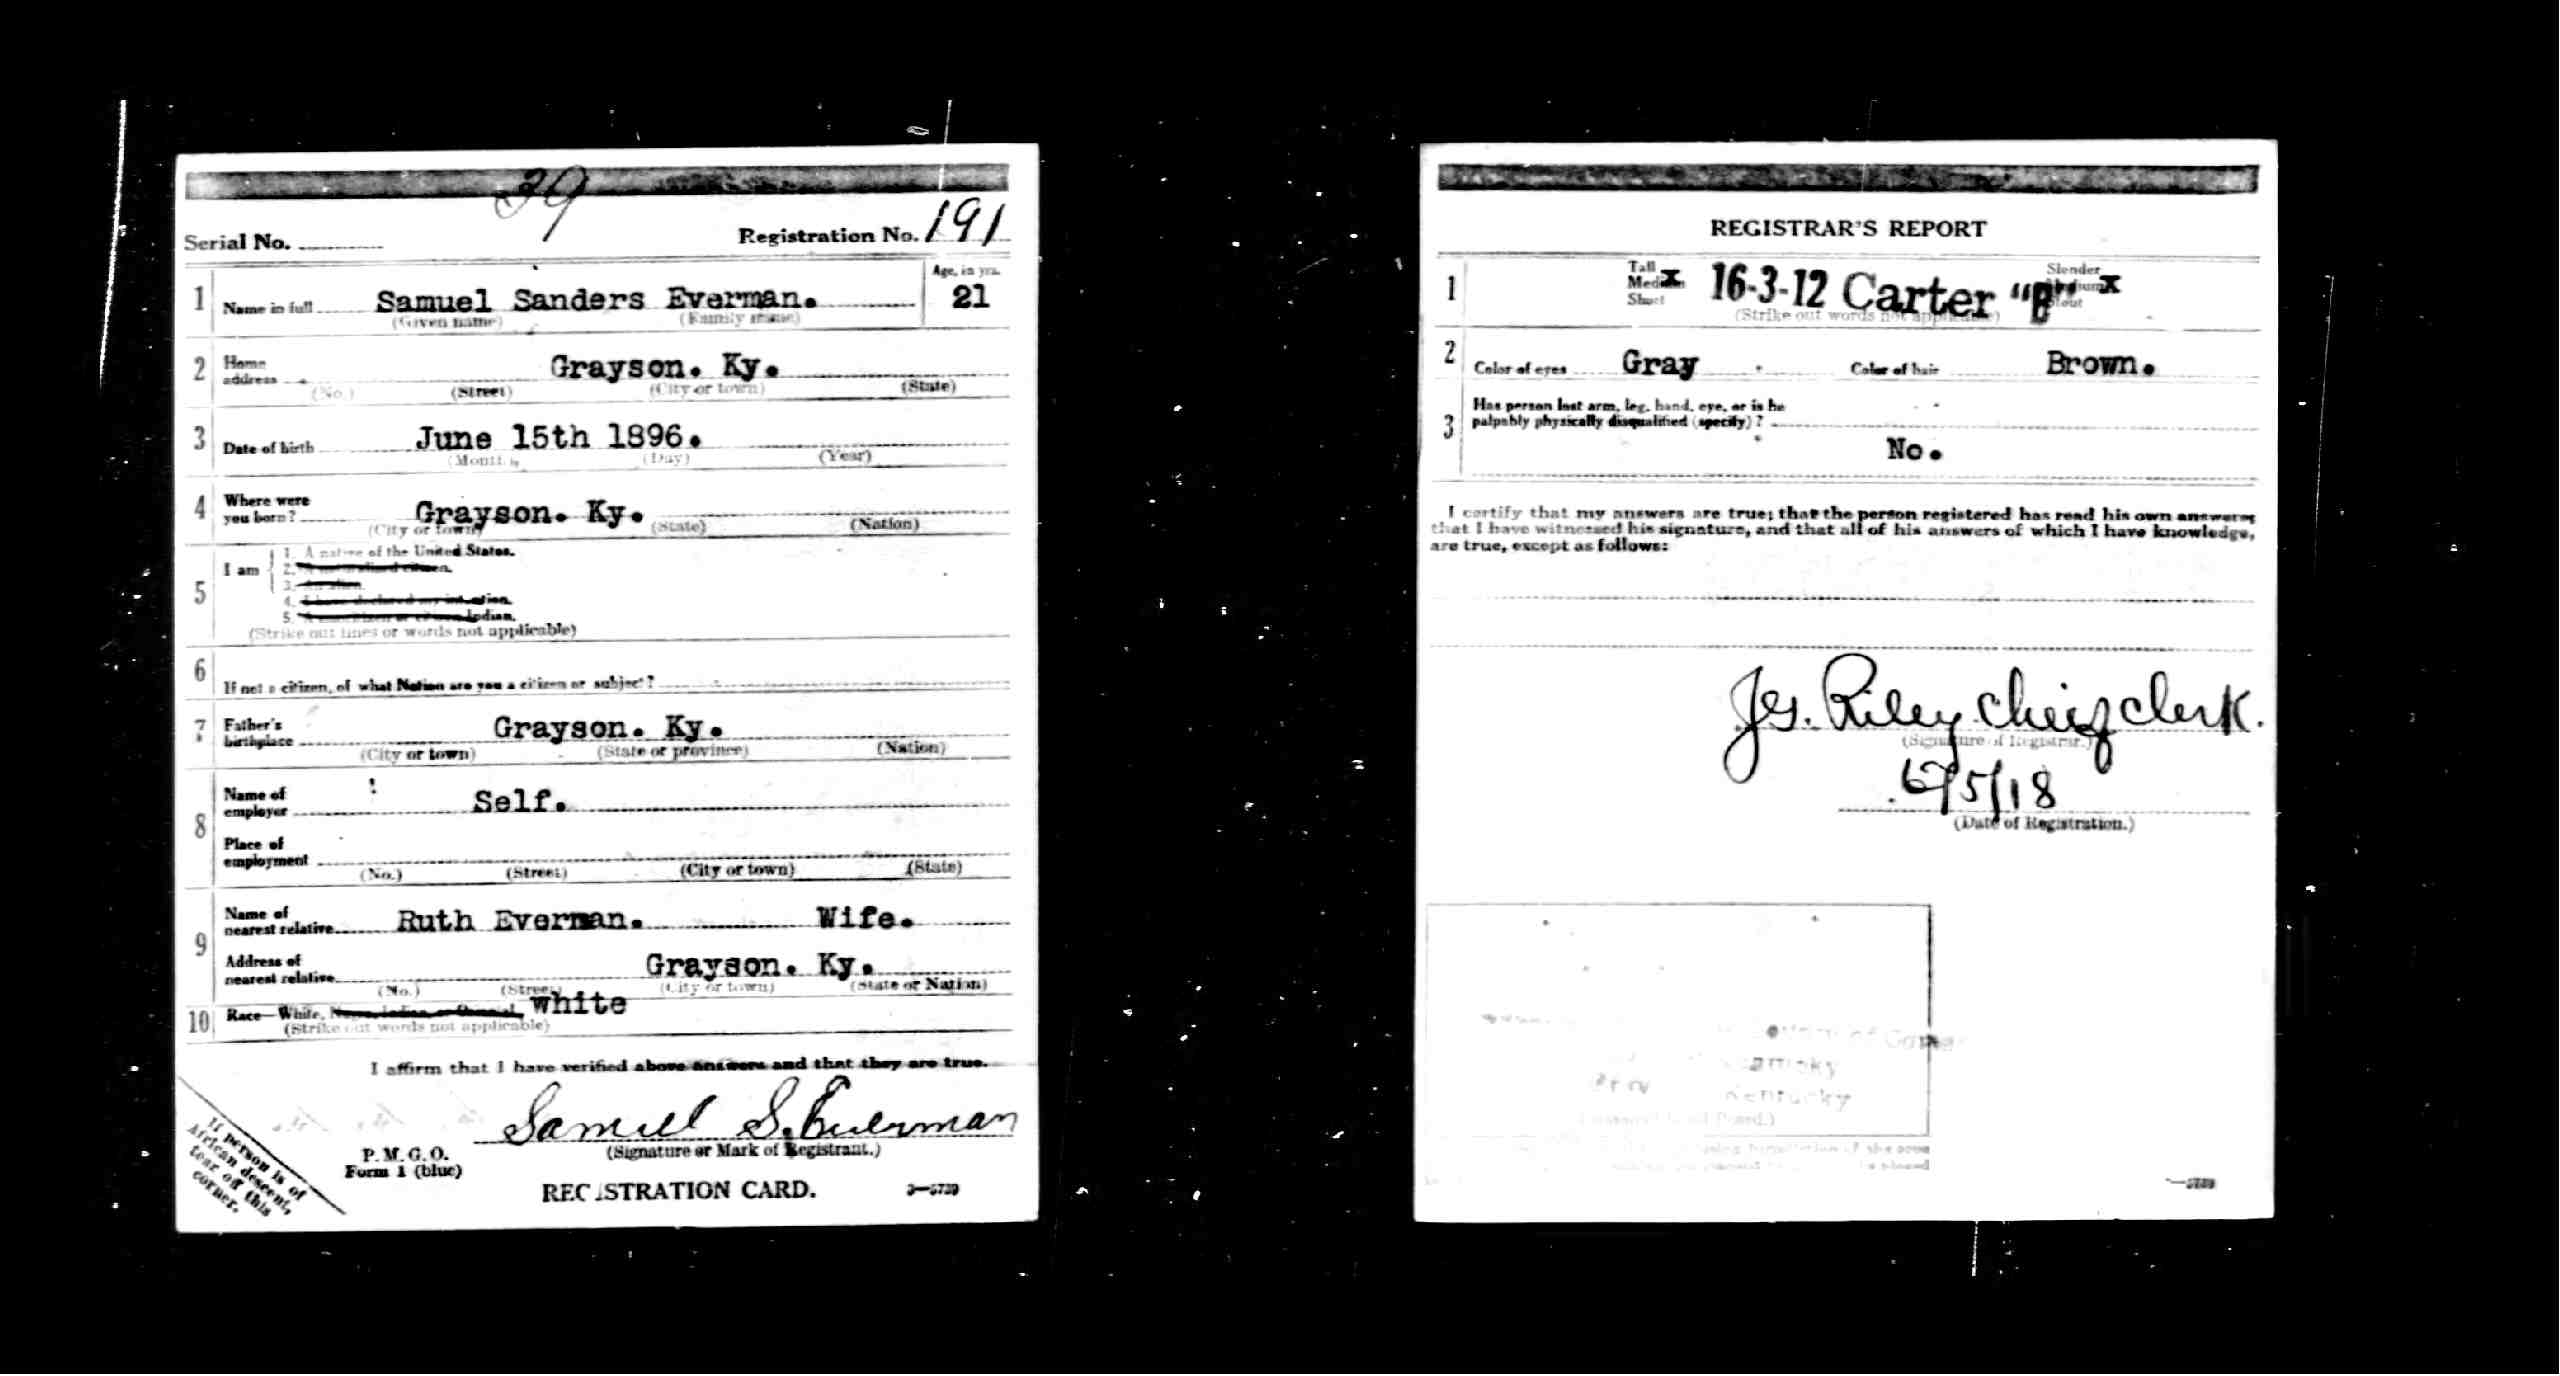 39
Serial No. Registration No. 191
1 Name in full Samuel Sanders Everman. Age, in yrs. 21
(Given name) (Family name)
2 Home address Grayson. Ky.
(No.) (Street) (City or town) (State)
3 Date of birth June 15th 1896.
(Month) (Day) (Year)
4 Where were you born? Grayson. Ky.
(City or town) (State) (Nation)
5 I am
1. A native of the United States.
2. A naturalized citizen.
3. An alien.
4. I have declared my intention.
5. A noncitizen or citizen Indian.
(Strike out lines or words not applicable)
6 If not a citizen, of what Nation are you a citizen or subject?
7 Father's birthplace Grayson. Ky.
(City or town) (State or province) (Nation)
8 Name of employer Self.
Place of employment
(No.) (Street) (City or town) (State)
9 Name of nearest relative Ruth Everman. Wife.
Address of nearest relative Grayson. Ky.
(No.) (Street) (City or town) (State or Nation)
10 Race—White, Negro, Indian, or Oriental. White
(Strike out words not applicable)
I affirm that I have verified above answers and that they are true.
Samuel S. Everman
(Signature or Mark of Registrant.)
P. M. G. O.
Form 1 (blue)
REGISTRATION CARD. 3—5739
If person is of
African descent,
tear off this
corner.
REGISTRAR'S REPORT
1 Tall Medium x Short 16-3-12 Carter "B" Slender Medium x Stout
(Strike out words not applicable)
2 Color of eyes Gray Color of hair Brown.
3 Has person lost arm, leg, hand, eye, or is he
palpably physically disqualified (specify)?
No.
I certify that my answers are true; that the person registered has read his own answers;
that I have witnessed his signature, and that all of his answers of which I have knowledge,
are true, except as follows:
Jes. Riley Chief Clerk.
(Signature of Registrar.)
6/5/18
(Date of Registration.)
Kentucky